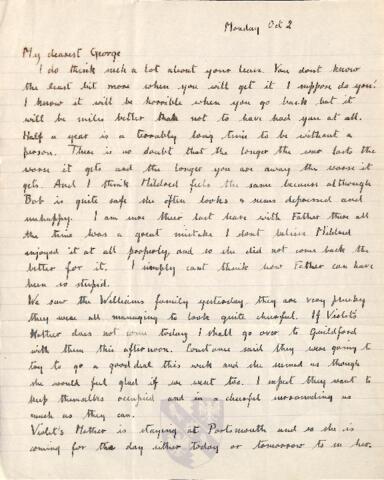 Monday Oct 2
My dearest George
I do think such a lot about your leave. You dont know
the least bit more when you will get it I suppose do you?
I know it will be horrible when you go back but it
will be miles better than not to have had you at all.
Half a year is a terribly long time to be without a
person. There is no doubt that the longer the war lasts the
worse it gets and the longer you are away the worse it
gets. And I think Mildred feels the same because although
Bob is quite safe she often looks & seems depressed and
unhappy. I am sure their last leave with Father there all
the time was a great mistake I dont believe Mildred
enjoyed it at all properly, and so she did not come back the
better for it. I simply cant think how Father can have
been so stupid.
We saw the Williams family yesterday they are very plucky
they were all managing to look quite cheerful. If Violet's
Mother does not come today I shall go over to Guildford
with them this afternoon. Constance said they were going to
try to go a good deal this week and she seemed as though
she would feel glad if we went too. I expect they want to
keep themselves occupied and in a cheerful surrounding as
much as they can.
Violet's Mother is staying at Portsmouth and so she is
coming for the day either today or tomorrow to see her.